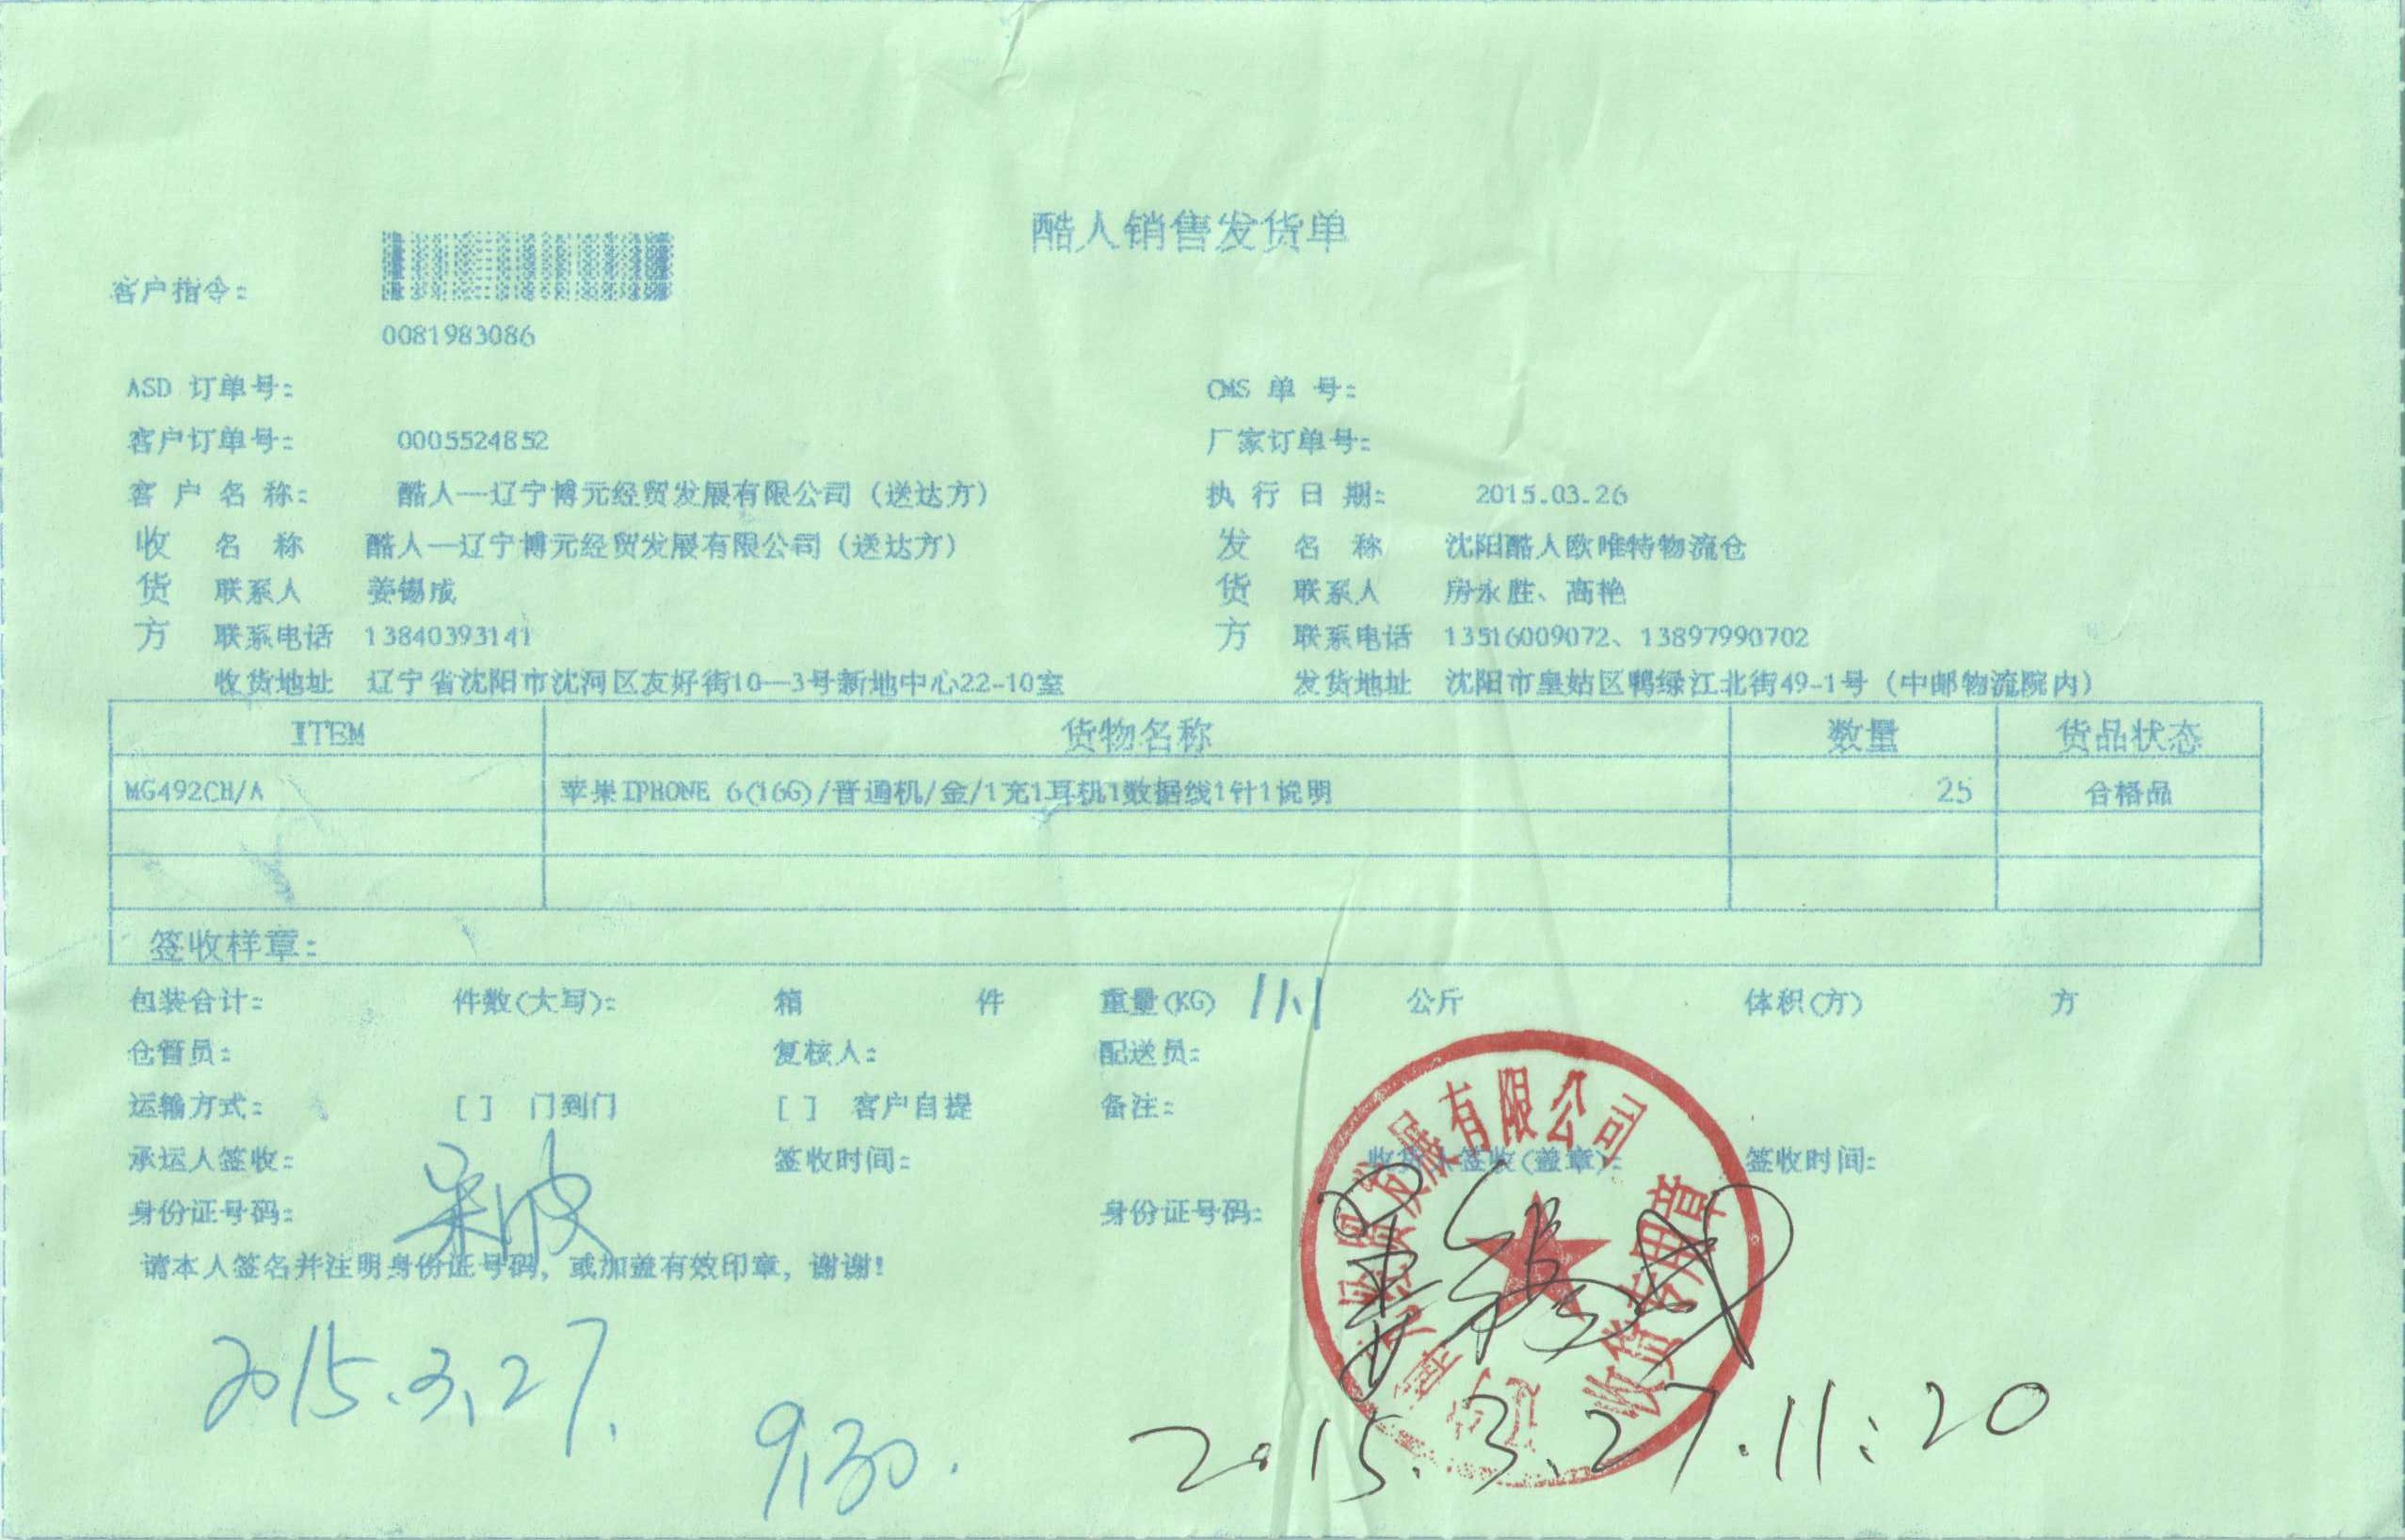 酷人销售发货单
客户指令:
0081983086
ASD 订单号: CMS 单 号:
客户订单号: 0005524852 厂家订单号:
客 户 名 称: 酷人—辽宁博元经贸发展有限公司（送达方） 执 行 日 期: 2015.03.26
收 名 称 酷人—辽宁博元经贸发展有限公司（送达方） 发 名 称 沈阳酷人欧唯特物流仓
货 联系人 姜锡成 货 联系人 房永胜、高艳
方 联系电话 13840393141 方 联系电话 13516009072、13897990702
收货地址 辽宁省沈阳市沈河区友好街10—3号新地中心22-10室 发货地址 沈阳市皇姑区鸭绿江北街49-1号（中邮物流院内）
ITEM 货物名称 数量 货品状态
MG492CH/A 苹果IPHONE 6(16G)/普通机/金/1充1耳机1数据线1针1说明 25 合格品
签收样章:
包装合计: 件数(大写): 箱 件 重量(KG) 11.1 公斤 体积(方) 方
仓管员: 复核人: 配送员:
运输方式: [ ] 门到门 [ ] 客户自提 备注:
承运人签收: 签收时间: 收货人签收(盖章): 签收时间:
身份证号码: 身份证号码:
请本人签名并注明身份证号码，或加盖有效印章，谢谢!
经贸发展有限公司
收货专用章
姜锡成
2015.3.27.
9:30.
2015.3.27.11:20